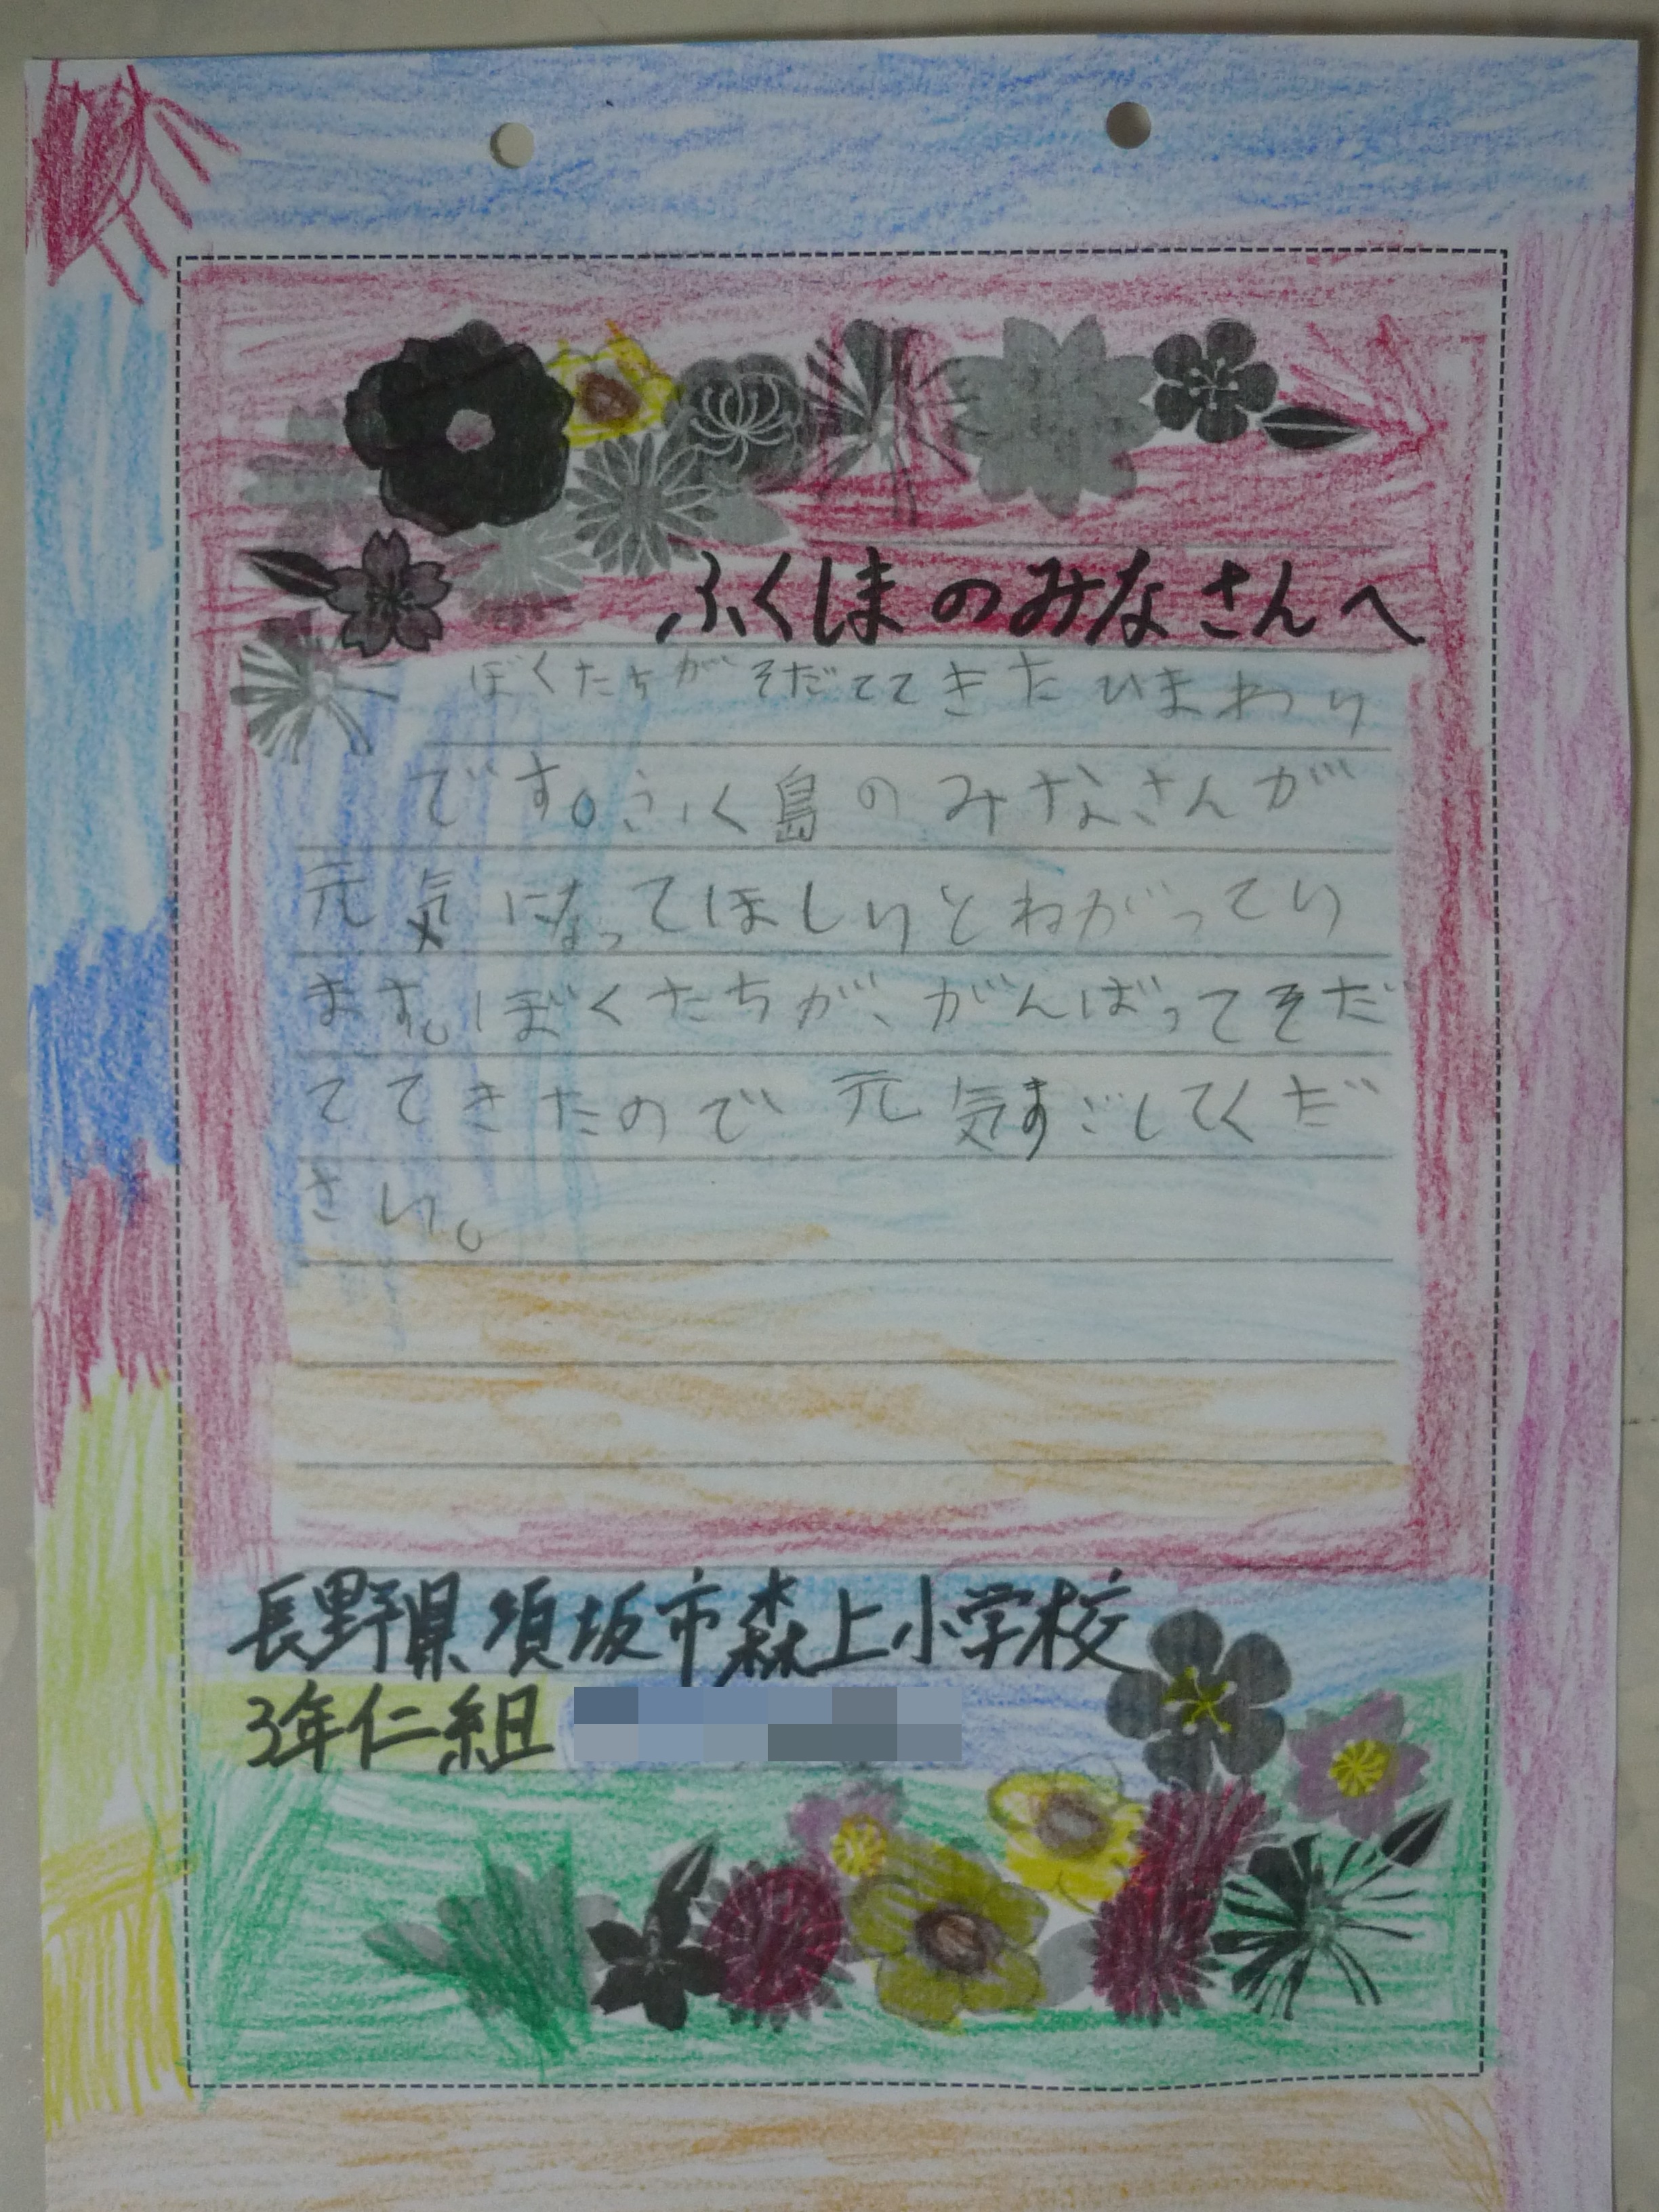 ふくしまのみなさんへ
ぼくたちがそだててきたひまわり
です。ふく島のみなさんが
元気になってほしいとねがってい
ます。ぼくたちが、がんばってそだ
ててきたので元気すごしてくだ
さい。
長野県須坂市森上小学校
3年仁組